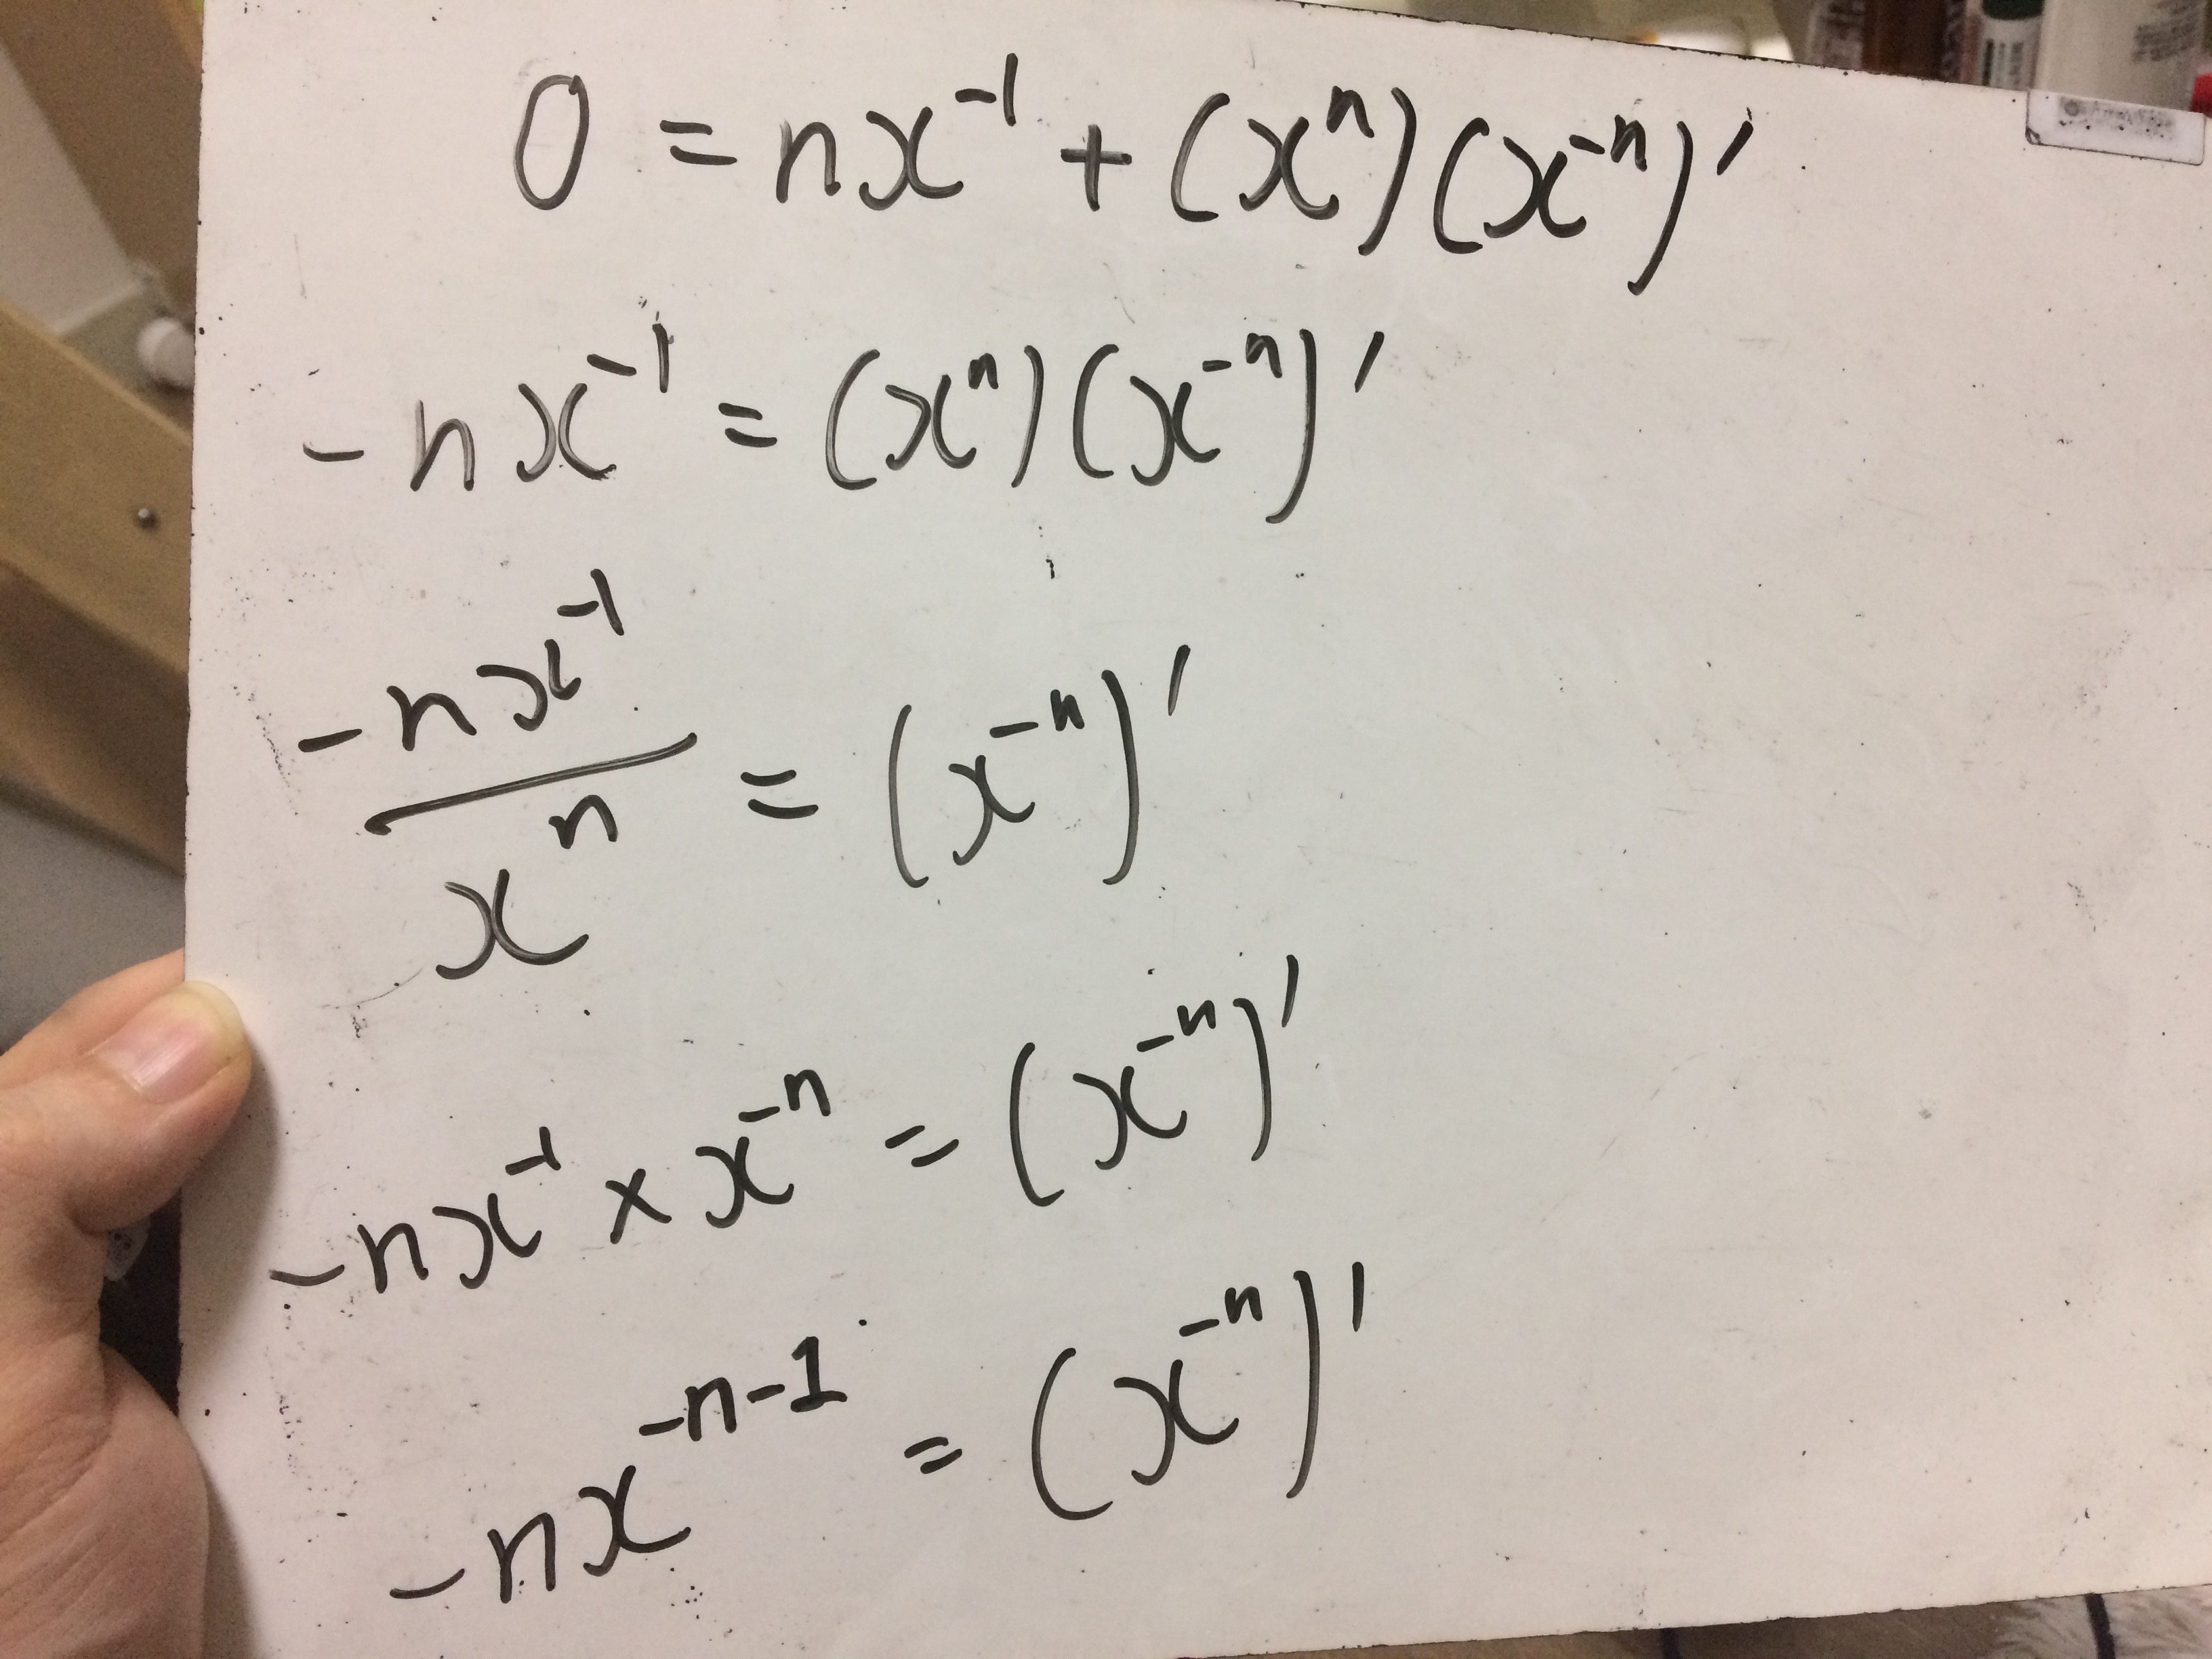 0 = nx⁻¹ + (xⁿ)(x⁻ⁿ)′
-nx⁻¹ = (xⁿ)(x⁻ⁿ)′
-nx⁻¹/xⁿ = (x⁻ⁿ)′
-nx⁻¹ × x⁻ⁿ = (x⁻ⁿ)′
-nx⁻ⁿ⁻¹ = (x⁻ⁿ)′